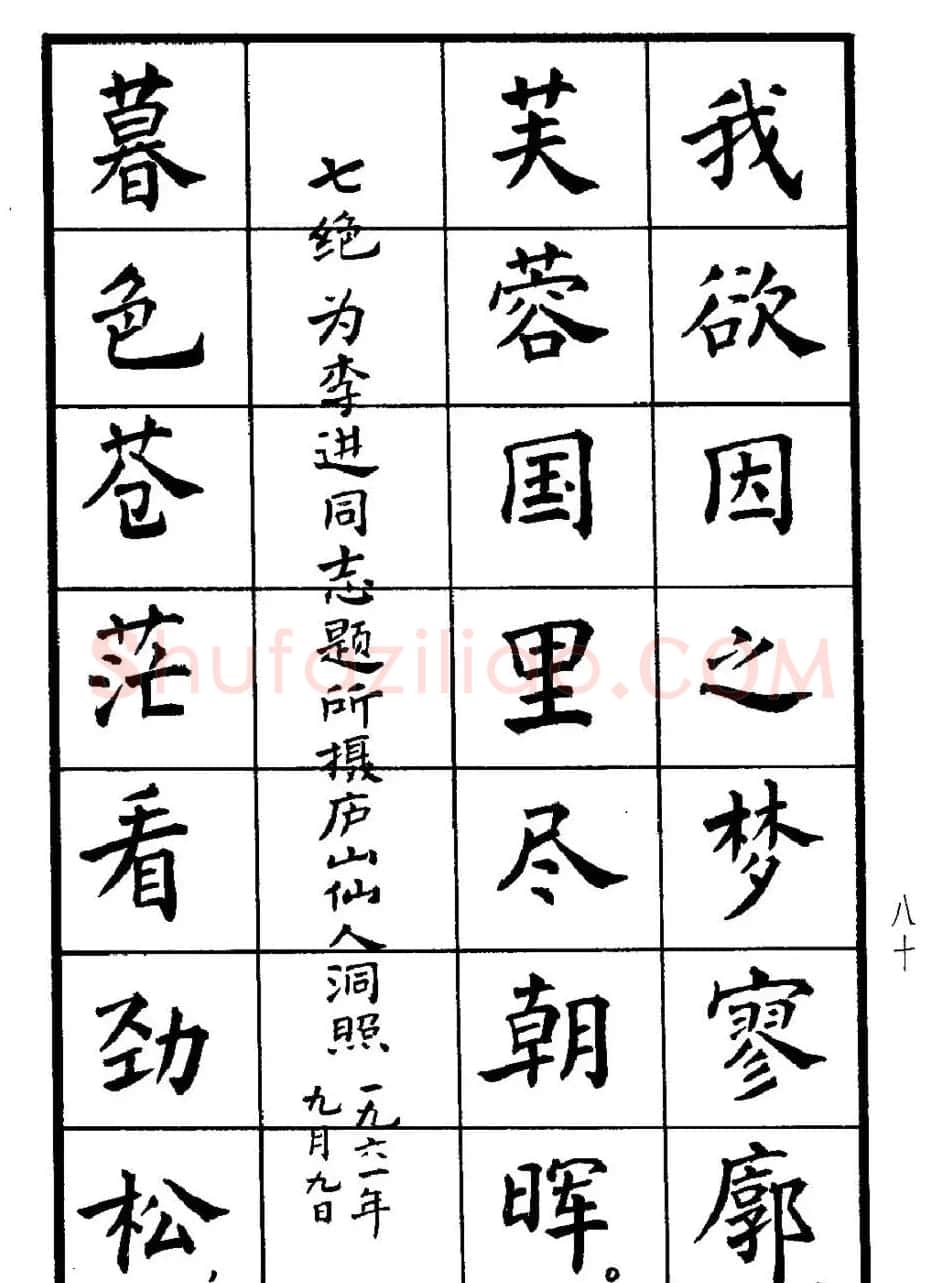 我欲因之梦寥廓
芙蓉国里尽朝晖。
七绝 为李进同志题所摄庐山仙人洞照
一九六一年
九月九日
暮色苍茫看劲松，
八十
Shufaziliao.COM